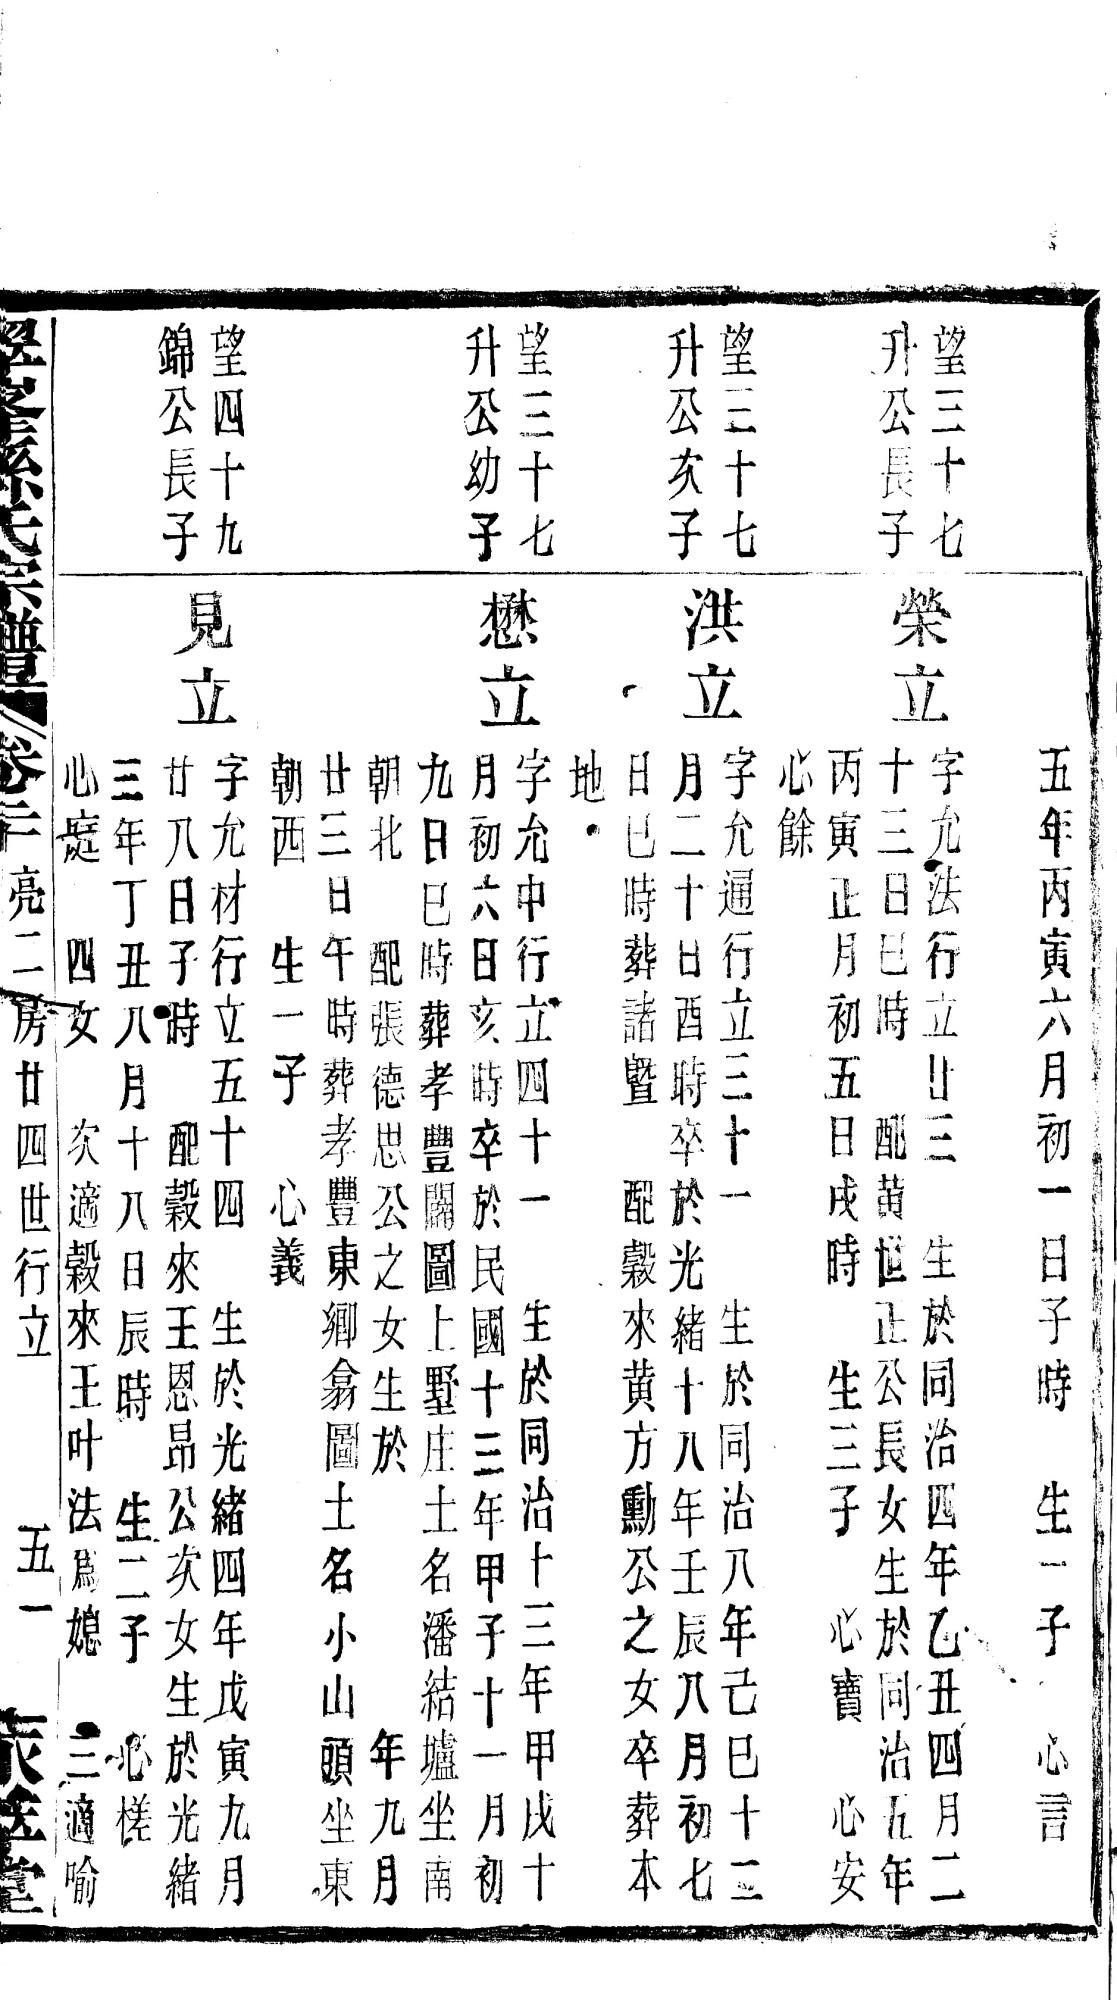 五年丙寅六月初一日子時 生一子 心言
望三十七
升公長子
榮立
字允法行立廿三 生於同治四年乙丑四月二
十三日巳時 配黄世正公長女生於同治五年
丙寅正月初五日戌時 生三子 心寶 心安
心餘
望三十七
升公次子
洪立
字允通行立三十一 生於同治八年己巳十二
月二十日酉時卒於光緒十八年壬辰八月初七
日巳時葬諸暨 配穀來黄方勳公之女卒葬本
地
望三十七
升公幼子
懋立
字允中行立四十一 生於同治十三年甲戌十
月初六日亥時卒於民國十三年甲子十一月初
九日巳時葬孝豐關圖上墅庄土名潘結壚坐南
朝北 配張德忠公之女生於 年九月
廿三日午時葬孝豐東鄉翕圖土名小山頭坐東
朝西 生一子 心義
望四十九
錦公長子
見立
字允材行立五十四 生於光緒四年戊寅九月
廿八日子時 配穀來王恩昂公次女生於光緒
三年丁丑八月十八日辰時 生二子 心槎
心庭 四女 次適穀來王叶法爲媳 三適喻
孫氏宗譜 卷二 亮二房廿四世行立 五一 堂